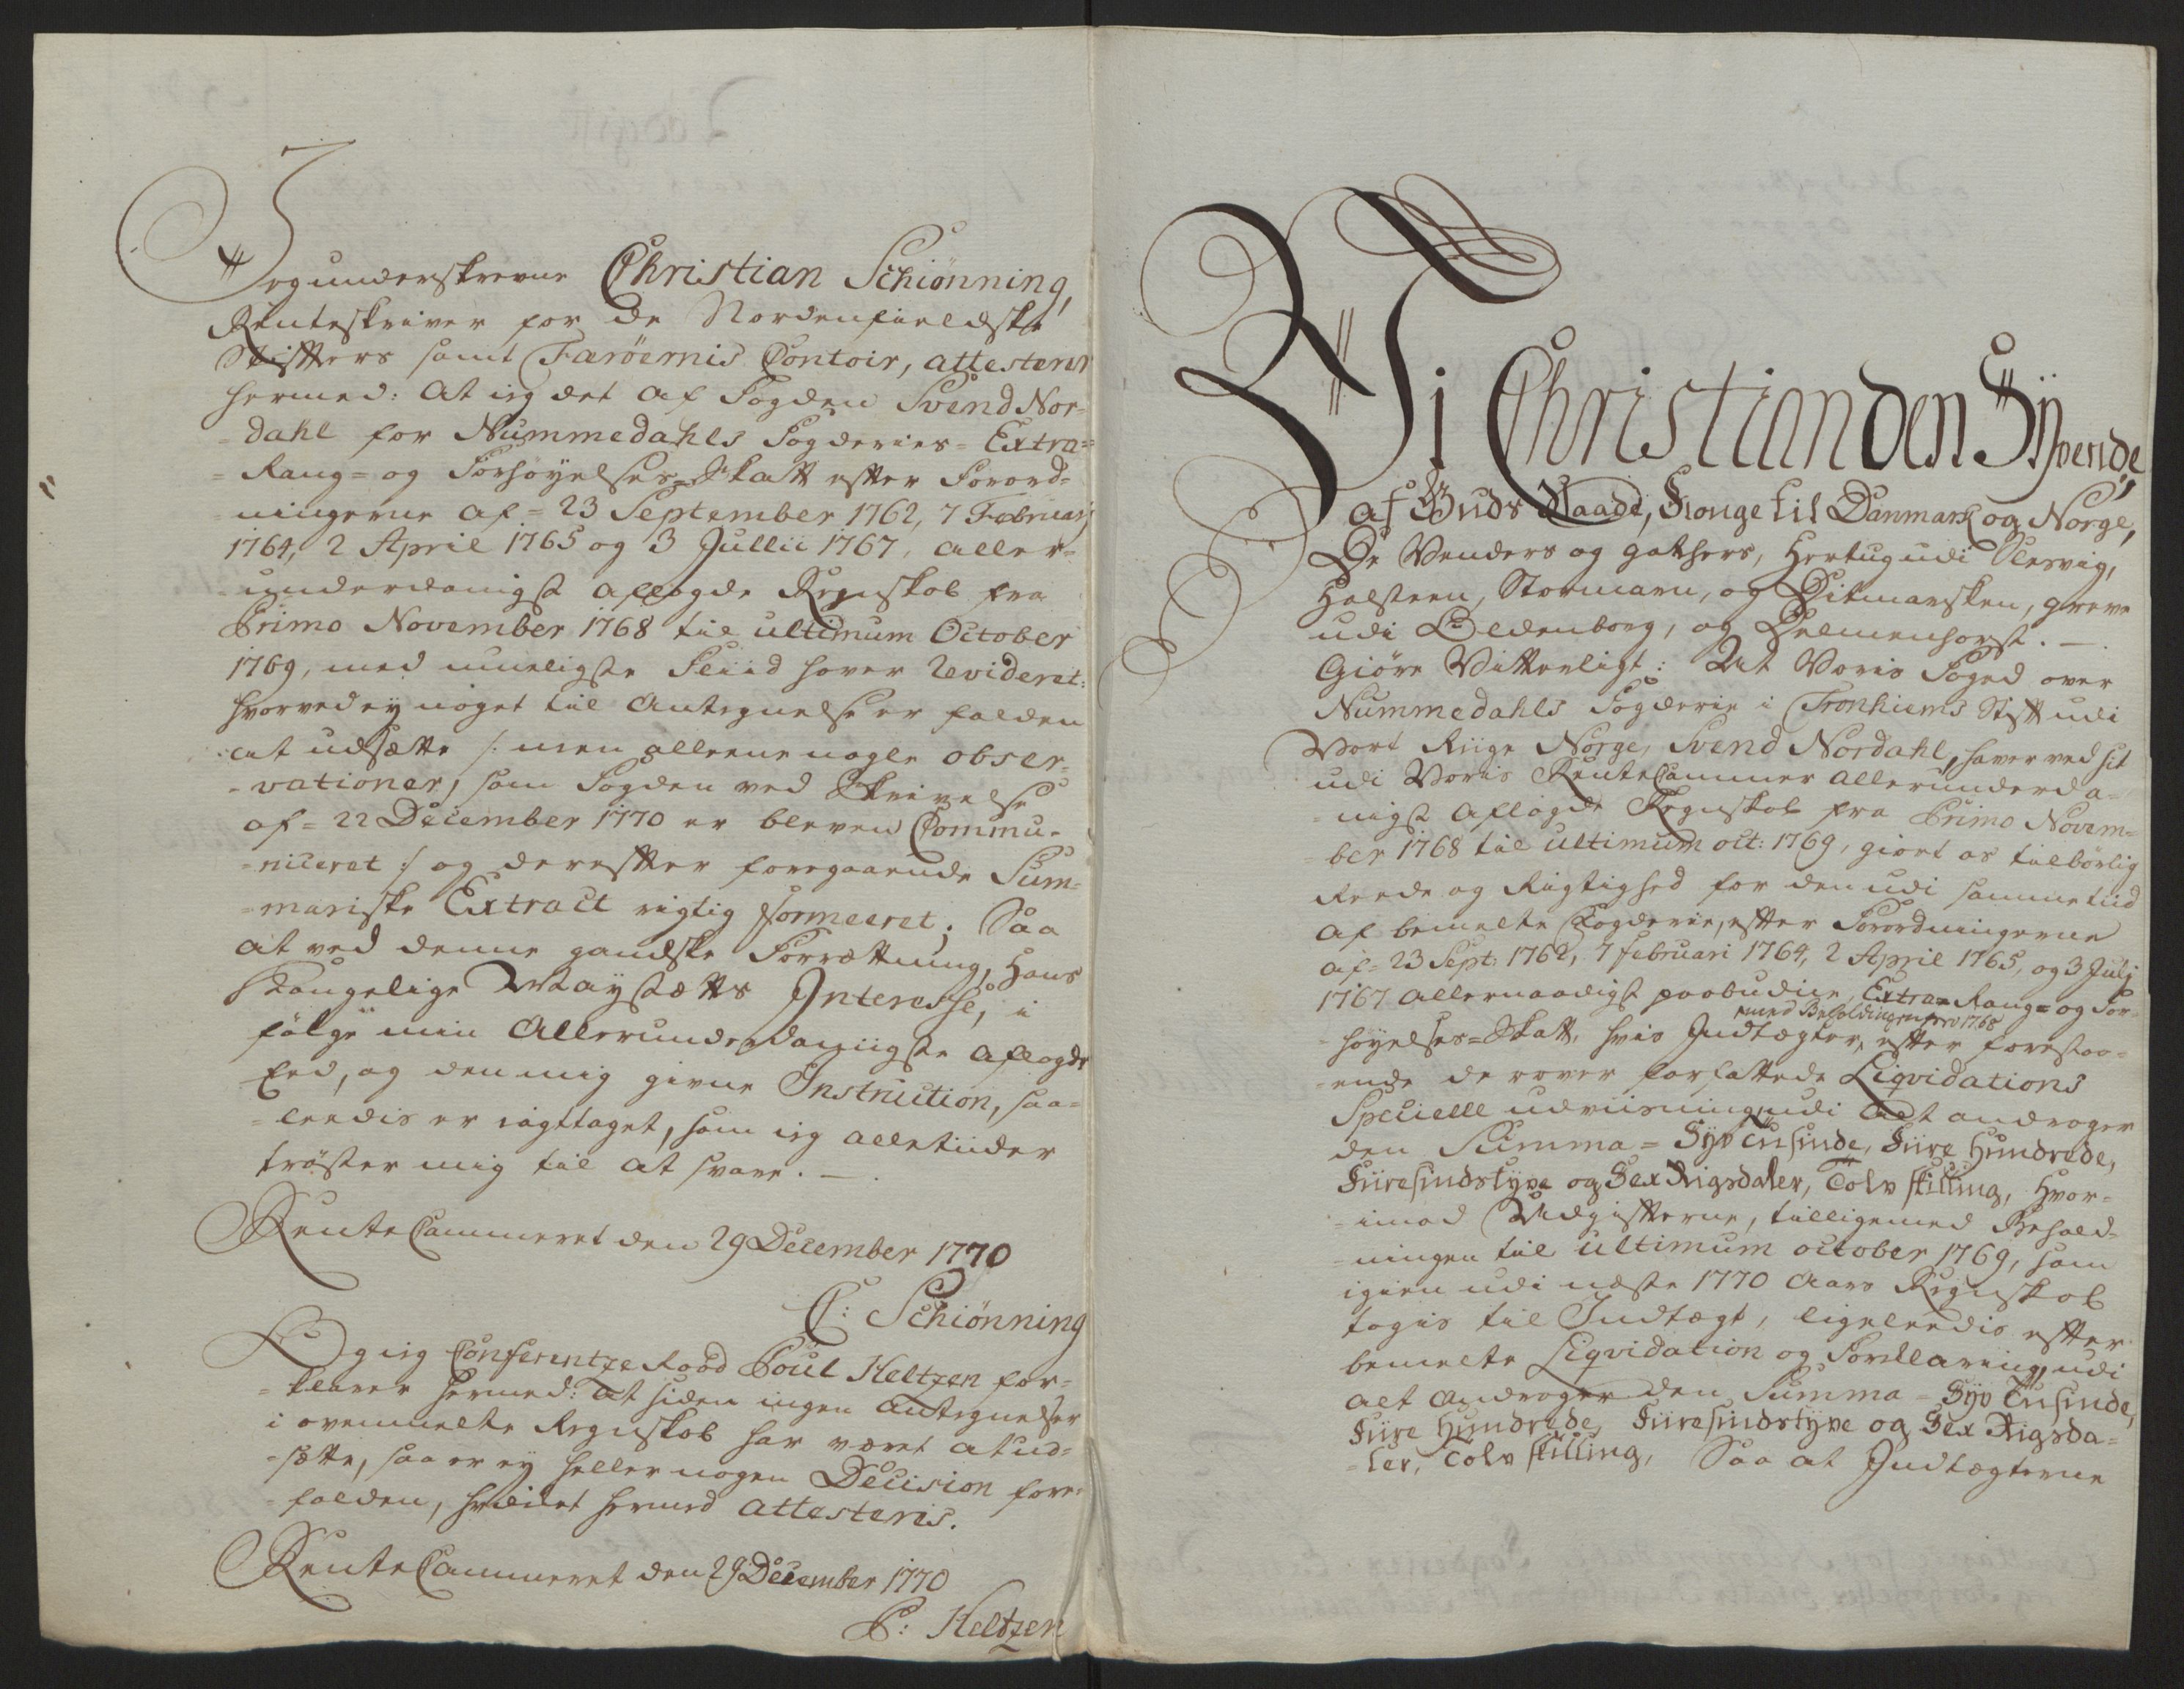 Jeg underskrevne Christian Schiönning,
Renteskriver for de Nordenfieldske
Stifters samt Færöernis Contoir, attesterer
hermed: At ieg det af Fogden Svend Nor-
-dahl for Nummedahls Fogderies- Extra-
-Rang- og Forhöyelses-Skatt efter Forord-
ningerne af- 23 September 1762, 7 Februarj
1764, 2 April 1765 og 3 Jullii 1767, aller-
underdanigst aflagde Regnskab fra
Primo November 1768 til ultimum October
1769, med mueligste Fliid haver Revideret:
hvorved ey noget til Antegnelse er falden
at udsætte /: men alleene nogle obser-
-vationer, som Fogden ved Skrivelse
af- 22 December 1770 er bleven Commu-
-niceret :/ og derefter foregaaende Sum-
-mariske Extract rigtig formeeret; Saa
at ved denne gandske Forrættning, Hans
Kongelige Mayestætts Interesse, i
fölge min Allerunderdanigste aflagde
Eed, og den mig givne Instruction, saa-
-leedis er iagttaget, som ieg alletiider
tröster mig til at svare. —
RenteCammeret den 29 December 1770
C: Schiönning
Og ieg ConferentzeRaad Poul Heltzen for-
-klarer hermed: at siden ingen Antegnelser
i ovenmelte Regnskab har været at ud-
-sætte, saa er ey heller nogen Decision fore-
falden, hvilket hermed attesteris.
RenteCammeret den 29 December 1770
P: Heltzen
Vi Christian den Syvende
af Guds Naade, Konge til Danmark og Norge,
De Venders og Gothers, Hertug udi Slesvig,
Holsteen, Stormarn, og Ditmarsken, Greve
udi Oldenborg, og Delmenhorst. —
Giöre Vitterligt: At Voris Foged over
Nummedahls Fogderie i Tronhiems Stift udi
Vort Riige Norge, Svend Nordahl, haver ved sit
udi Voris RenteCammer allerunderda-
-nigst aflagde Regnskab fra Primo Novem-
ber 1768 til ultimum oct: 1769, giort os tilbörlig
Reede og Rigtighed for den udi samme tiid
af bemelte Fogderie, efter Forordningerne
af- 23 Sept: 1762, 7 Februari 1764, 2 April 1765, og 3 Julj
1767 allernaadigst paabudne Extra- Rang- og For-
med Beholdningen pro 1768
höyelses-Skatt, hvis Indtægter, efter forestaa-
-ende derover forfattede Liqvidations
Specielle udviisning, udi alt androger
den Summa = Syv Tusinde, Fiire Hundrede,
Fiiresindstyve og Sex Rigsdaler, Tolv skilling, Hvor-
-imod Udgifterne, tilligemed Behold-
-ningen til ultimum october 1769, som
igien udi næste 1770 Aars Regnskab
tagis til Indtægt, ligeleedis efter
bemelte Liqvidation og Forklaring, udi
alt androger den Summa = Syv Tusinde,
Fiire Hundrede, Fiiresindstyve og Sex Rigsda-
-ler, Tolv skilling, Saa at Indtægterne